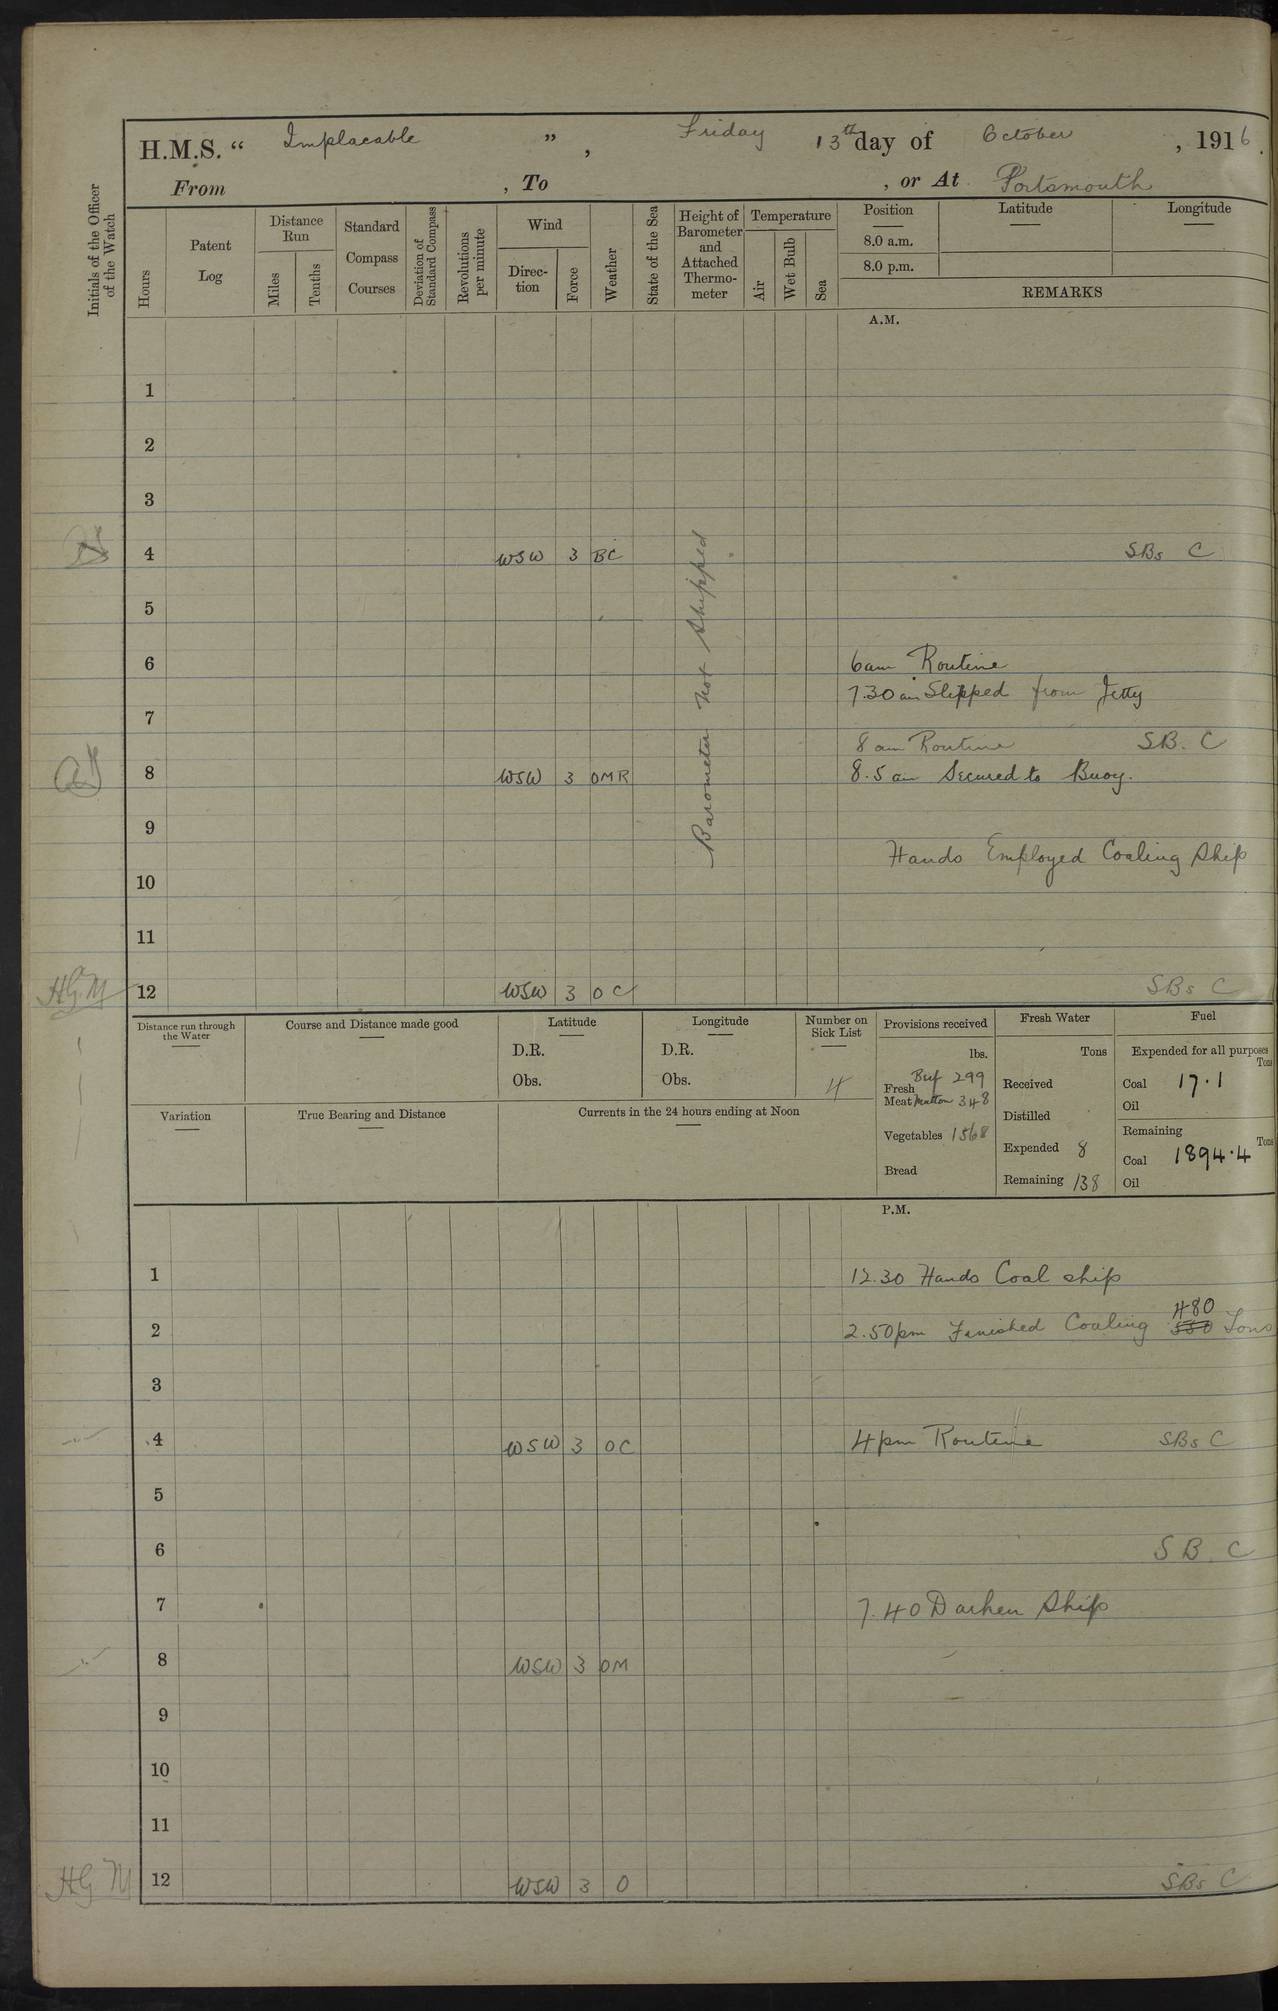 H.M.S. “ Implacable ” , Friday 13th day of October , 1916.
From , To , or At Portsmouth
Initials of the Officer of the Watch
Hours
Patent Log
Distance Run
Miles
Tenths
Standard Compass Courses
Deviation of Standard Compass
Revolutions per minute
Wind
Direc-tion
Force
Weather
State of the Sea
Height of Barometer and Attached Thermo-meter
Temperature
Air
Wet Bulb
Sea
Position
8.0 a.m.
8.0 p.m.
Latitude
Longitude
REMARKS
A.M.
1
2
3
4 WSW 3 BC SBs C
5
Barometer not Shipped
6 6 am Routine
7.30 am Slipped from Jetty
7
8 am Routine SB. C
8 WSW 3 OMR 8.5 am Secured to Buoy.
9
Hands Employed Coaling Ship
10
11
HGM 12 WSW 3 OC SBs C
Distance run through the Water
Course and Distance made good
Latitude
D.R.
Obs.
Longitude
D.R.
Obs.
Number on Sick List
4
Provisions received
lbs.
Fresh Meat Beef 299
Mutton 348
Vegetables 1568
Bread
Fresh Water
Tons
Received
Distilled
Expended 8
Remaining 138
Fuel
Expended for all purposes
Tons
Coal 17.1
Oil
Remaining
Tons
Coal 1894.4
Oil
Variation
True Bearing and Distance
Currents in the 24 hours ending at Noon
P.M.
1 12.30 Hands Coal ship
480
2 2.50 pm Finished Coaling 550 Tons
3
4 WSW 3 OC 4 pm Routine SBs C
5
6 SB. C
7 7.40 Darken Ship
8 WSW 3 OM
9
10
11
HGM 12 WSW 3 O SBs C